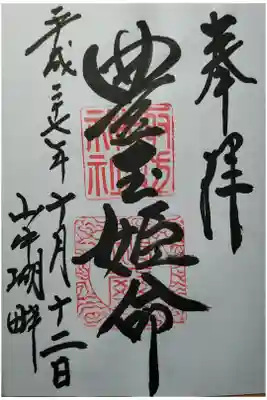 奉拝
豊玉姫命
平成二七年十月十二日
山中湖畔